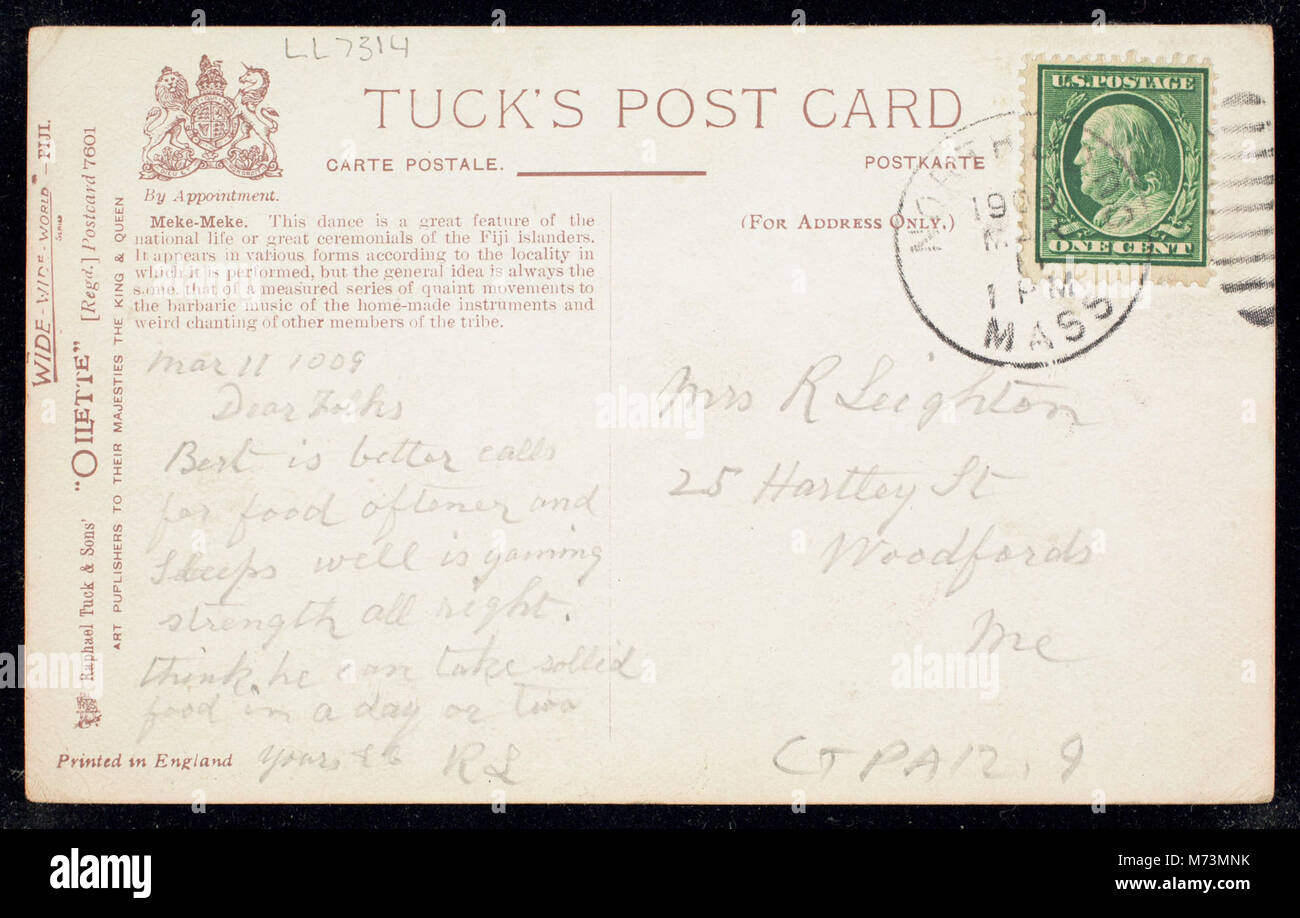 LL7314
TUCK'S POST CARD
CARTE POSTALE.
POSTKARTE
By Appointment.
(FOR ADDRESS ONLY.)
Meke-Meke. This dance is a great feature of the
national life or great ceremonials of the Fiji islanders.
It appears in various forms according to the locality in
which it is performed, but the general idea is always the
same, that of a measured series of quaint movements to
the barbaric music of the home-made instruments and
weird chanting of other members of the tribe.
WIDE-WIDE-WORLD" – FIJI.
SERIES
Raphael Tuck & Sons' "OILETTE" [Regd.] Postcard 7601
ART PUPLISHERS TO THEIR MAJESTIES THE KING & QUEEN
U.S. POSTAGE
ONE CENT
1909
1 PM
MASS
Mar 11 1909
Dear Folks
Bert is better calls
for food oftener and
sleeps well is gaining
strength all right.
think he can take sollid
food in a day or two
Yours &c RL
Mrs R Leighton
25 Hartley St
Woodfords
Me
Printed in England
alamy
alamy stock photo
M73MNK
www.alamy.com